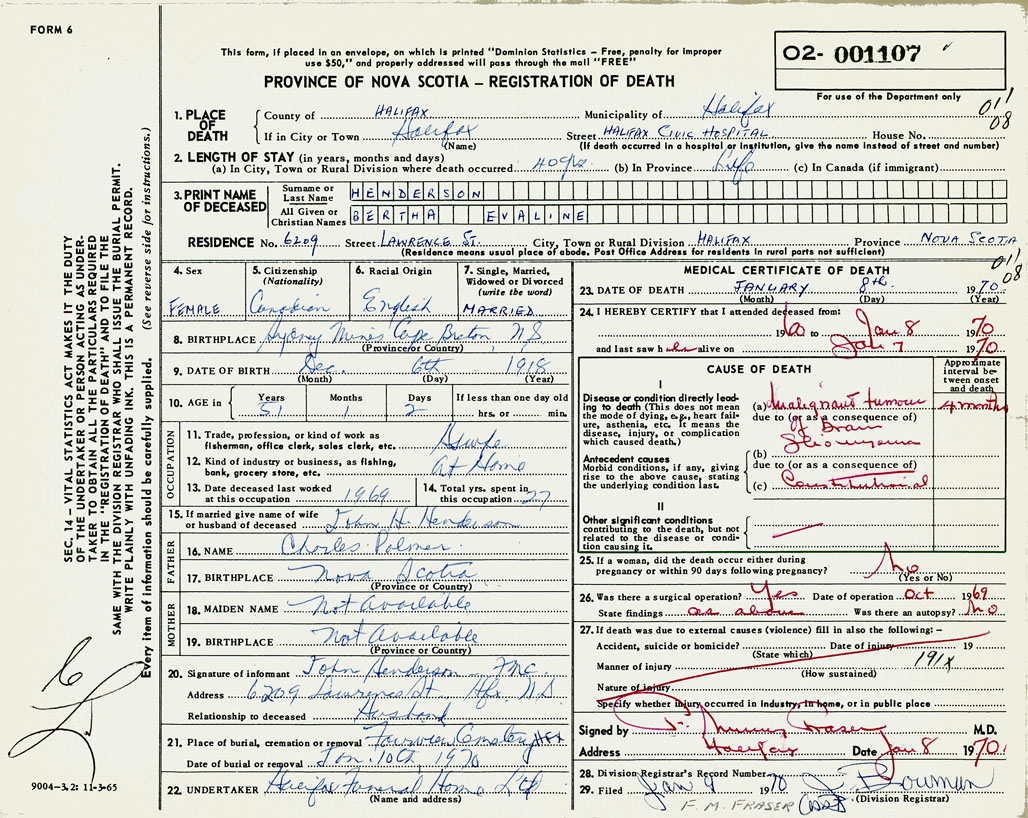 FORM 6
This form, if placed in an envelope, on which is printed "Dominion Statistics – Free, penalty for improper
use $50," and properly addressed will pass through the mail "FREE"
PROVINCE OF NOVA SCOTIA – REGISTRATION OF DEATH
O2- 001107
For use of the Department only
011
08
1. PLACE OF DEATH
County of HALIFAX Municipality of Halifax
If in City or Town Halifax Street HALIFAX CIVIC HOSPITAL House No.
(Name) (If death occurred in a hospital or institution, give the name instead of street and number)
2. LENGTH OF STAY (in years, months and days)
(a) In City, Town or Rural Division where death occurred 40yrs (b) In Province Life (c) In Canada (if immigrant)
3. PRINT NAME OF DECEASED
Surname or Last Name HENDERSON
All Given or Christian Names BERTHA EVALINE
RESIDENCE No. 6209 Street LAWRENCE ST. City, Town or Rural Division HALIFAX Province NOVA SCOTIA
(Residence means usual place of abode. Post Office Address for residents in rural parts not sufficient)
011
08
4. Sex
FEMALE
5. Citizenship
(Nationality)
Canadian
6. Racial Origin
English
7. Single, Married,
Widowed or Divorced
(write the word)
MARRIED
8. BIRTHPLACE Sydney Mines Cape Breton, N.S
(Province or Country)
9. DATE OF BIRTH Dec. 6th 1918
(Month) (Day) (Year)
10. AGE in
Years Months Days If less than one day old
51 1 2 hrs. or min.
OCCUPATION
11. Trade, profession, or kind of work as
fisherman, office clerk, sales clerk, etc. Hswfe
12. Kind of industry or business, as fishing,
bank, grocery store, etc. At Home
13. Date deceased last worked
at this occupation 1969
14. Total yrs. spent in
this occupation 27
15. If married give name of wife
or husband of deceased John H. Henderson
FATHER
16. NAME Charles Palmer
17. BIRTHPLACE Nova Scotia
(Province or Country)
MOTHER
18. MAIDEN NAME Not Available
19. BIRTHPLACE Not Available
(Province or Country)
20. Signature of informant John Henderson
Address 6209 Lawrence St Hfx N.S
Relationship to deceased Husband
21. Place of burial, cremation or removal Fairview Cemetery HFX
Date of burial or removal Jan. 10th, 1970
22. UNDERTAKER Halifax Funeral Home Ltd
(Name and address)
MEDICAL CERTIFICATE OF DEATH
23. DATE OF DEATH JANUARY 8th 1970
(Month) (Day) (Year)
24. I HEREBY CERTIFY that I attended deceased from:
1960 to Jan 8 1970
and last saw her alive on Jan 7 1970
CAUSE OF DEATH
Approximate
interval be-
tween onset
and death
I
Disease or condition directly lead-
ing to death (This does not mean
the mode of dying, e.g., heart fail-
ure, asthenia, etc. It means the
disease, injury, or complication
which caused death.)
(a) Malignant tumour 4 months
due to (or as a consequence of)
of Brain
Antecedent causes
Morbid conditions, if any, giving
rise to the above cause, stating
the underlying condition last.
(b)
due to (or as a consequence of)
(c) Constitutional
II
Other significant conditions
contributing to the death, but not
related to the disease or condi-
tion causing it.
25. If a woman, did the death occur either during
pregnancy or within 90 days following pregnancy? No
(Yes or No)
26. Was there a surgical operation? Yes Date of operation Oct 1969
State findings as above Was there an autopsy? No
27. If death was due to external causes (violence) fill in also the following: –
Accident, suicide or homicide? Date of injury 19
(State which)
Manner of injury 191X
(How sustained)
Nature of injury
Specify whether injury occurred in industry, in home, or in public place
Signed by Murray Fraser M.D.
Address Halifax Date Jan 8 1970
28. Division Registrar's Record Number
29. Filed Jan 9 1970 J. Bowman
(Division Registrar)
F. M. FRASER
SEC. 14 – VITAL STATISTICS ACT MAKES IT THE DUTY
OF THE UNDERTAKER OR PERSON ACTING AS UNDER-
TAKER TO OBTAIN ALL THE PARTICULARS REQUIRED
IN THE "REGISTRATION OF DEATH" AND TO FILE THE
SAME WITH THE DIVISION REGISTRAR WHO SHALL ISSUE THE BURIAL PERMIT.
WRITE PLAINLY WITH UNFADING INK. THIS IS A PERMANENT RECORD.
Every item of information should be carefully supplied. (See reverse side for instructions.)
9004–3.2: 11-3-65